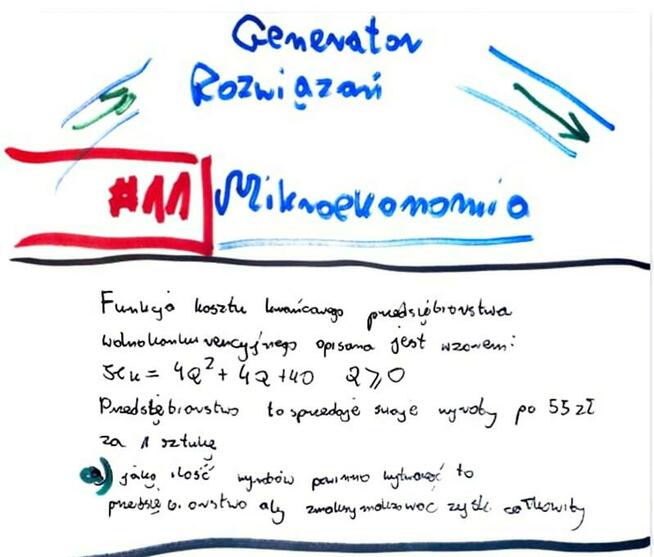 Generator
Rozwiązań
#11 Mikroekonomia
Funkcja kosztu krańcowego przedsiębiorstwa
wolnokonkurencyjnego opisana jest wzorem:
= 4Q² + 4Q + 40 Q ≥ 0
Przedsiębiorstwo to sprzedaje swoje wyroby po 55 zł
za 1 sztukę
a) jaką ilość wyrobów powinno wytwarzać to
przedsiębiorstwo aby zmaksymalizować zysk całkowity